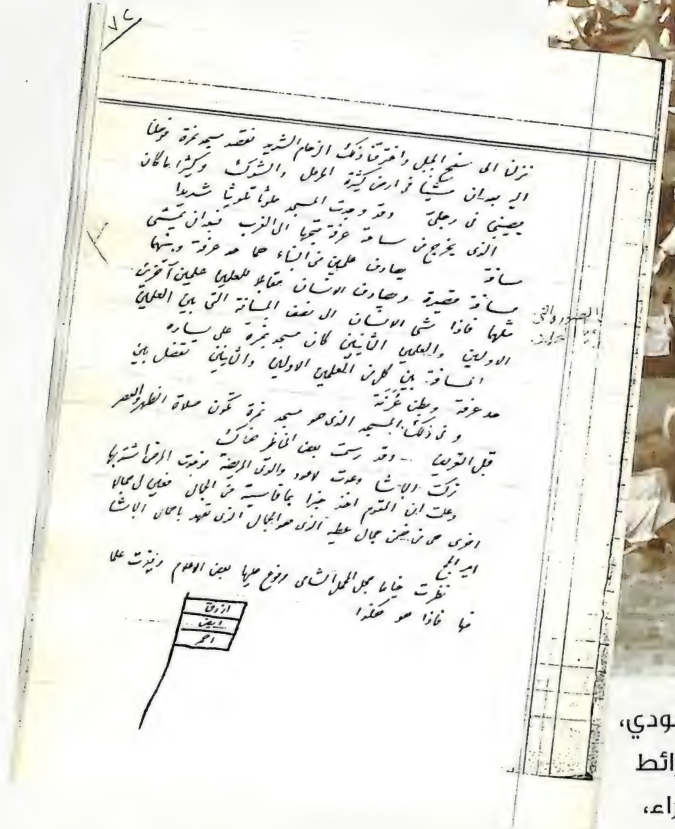 ٧٢
نزلنا الى سفح الجبل واخترقنا ذلك الزحام الشديد نقصد مسجد نمرة فوصلنا
اليه بعد ان مشينا في ارض كثيرة الرمل والشوك وكثيرا ما كان
يصيبني في رجلي وقد وجدت المسجد ملوثا تلويثا شديدا
الذى يخرج من ساحة عرفة متجها الى الغرب فبعد ان يمشى
مسافة يصادف علمين من البناء هما حد عرفة وبينهما
مسافة قصيرة ويصادف الانسان مقابلا للعلمين علمين آخرين
مثلها فاذا مشى الانسان الى نصف المسافة التى بين العلمين
الاولين والعلمين الثانيين كان مسجد نمرة على يساره
المسافة بين كل من العلمين الاولين والثانيين تفصل بين
حد عرفة وبطن عرنة
وفى ذلك المسجد الذى هو مسجد نمرة تكون صلاة الظهر والعصر
قبل التعريف - وقد رسمت بعض المناظر هناك
تركت الباشا وعدت لاعود والدتى المريضة
وعلمت ان المقوم اخذ خبرا بما قاسيته من الجمال
اخرى هى من ضمن جمال عطيه الذى هو الجمال الذى تعهد باحمال الباشا
امير الحج
نظرت خياما محل المحمل الشامى مرفوع عليها بعض الاعلام
منها فاذا هو هكذا
ازرق
ابيض
احمر
ودي،
ائط
راء،